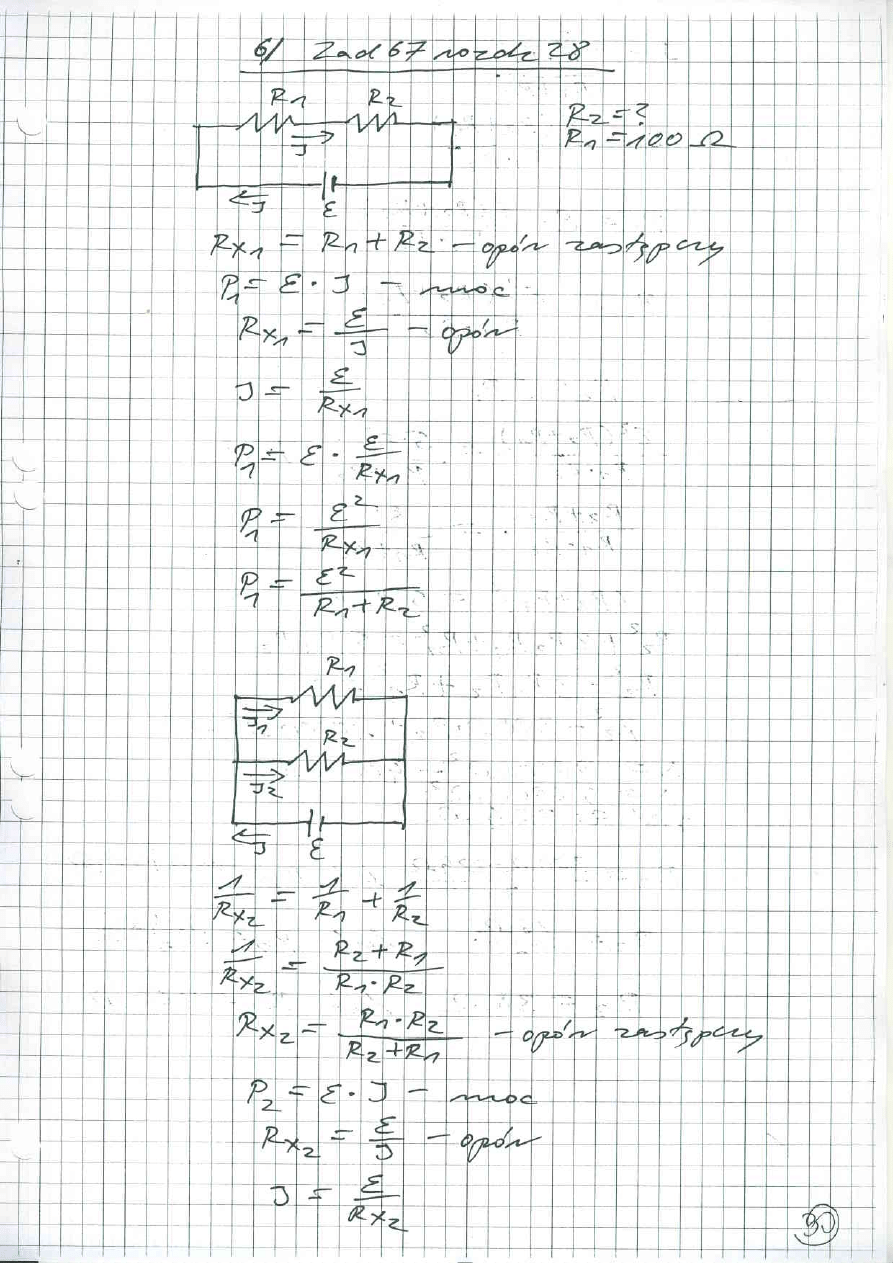 6/ Zad 67 rozdz 28
R₁ R₂
R₂ = ?
R₁ = 100 Ω
J
J ε
Rx₁ = R₁ + R₂ - opór zastępczy
P₁ = ε · J - moc
Rx₁ = ε/J - opór
J = ε/Rx₁
P₁ = ε · ε/Rx₁
P₁ = ε²/Rx₁
P₁ = ε²/(R₁ + R₂)
R₁
J₁
R₂
J₂
J ε
1/Rx₂ = 1/R₁ + 1/R₂
1/Rx₂ = (R₂ + R₁)/(R₁ · R₂)
Rx₂ = (R₁ · R₂)/(R₂ + R₁) - opór zastępczy
P₂ = ε · J - moc
Rx₂ = ε/J - opór
J = ε/Rx₂
30